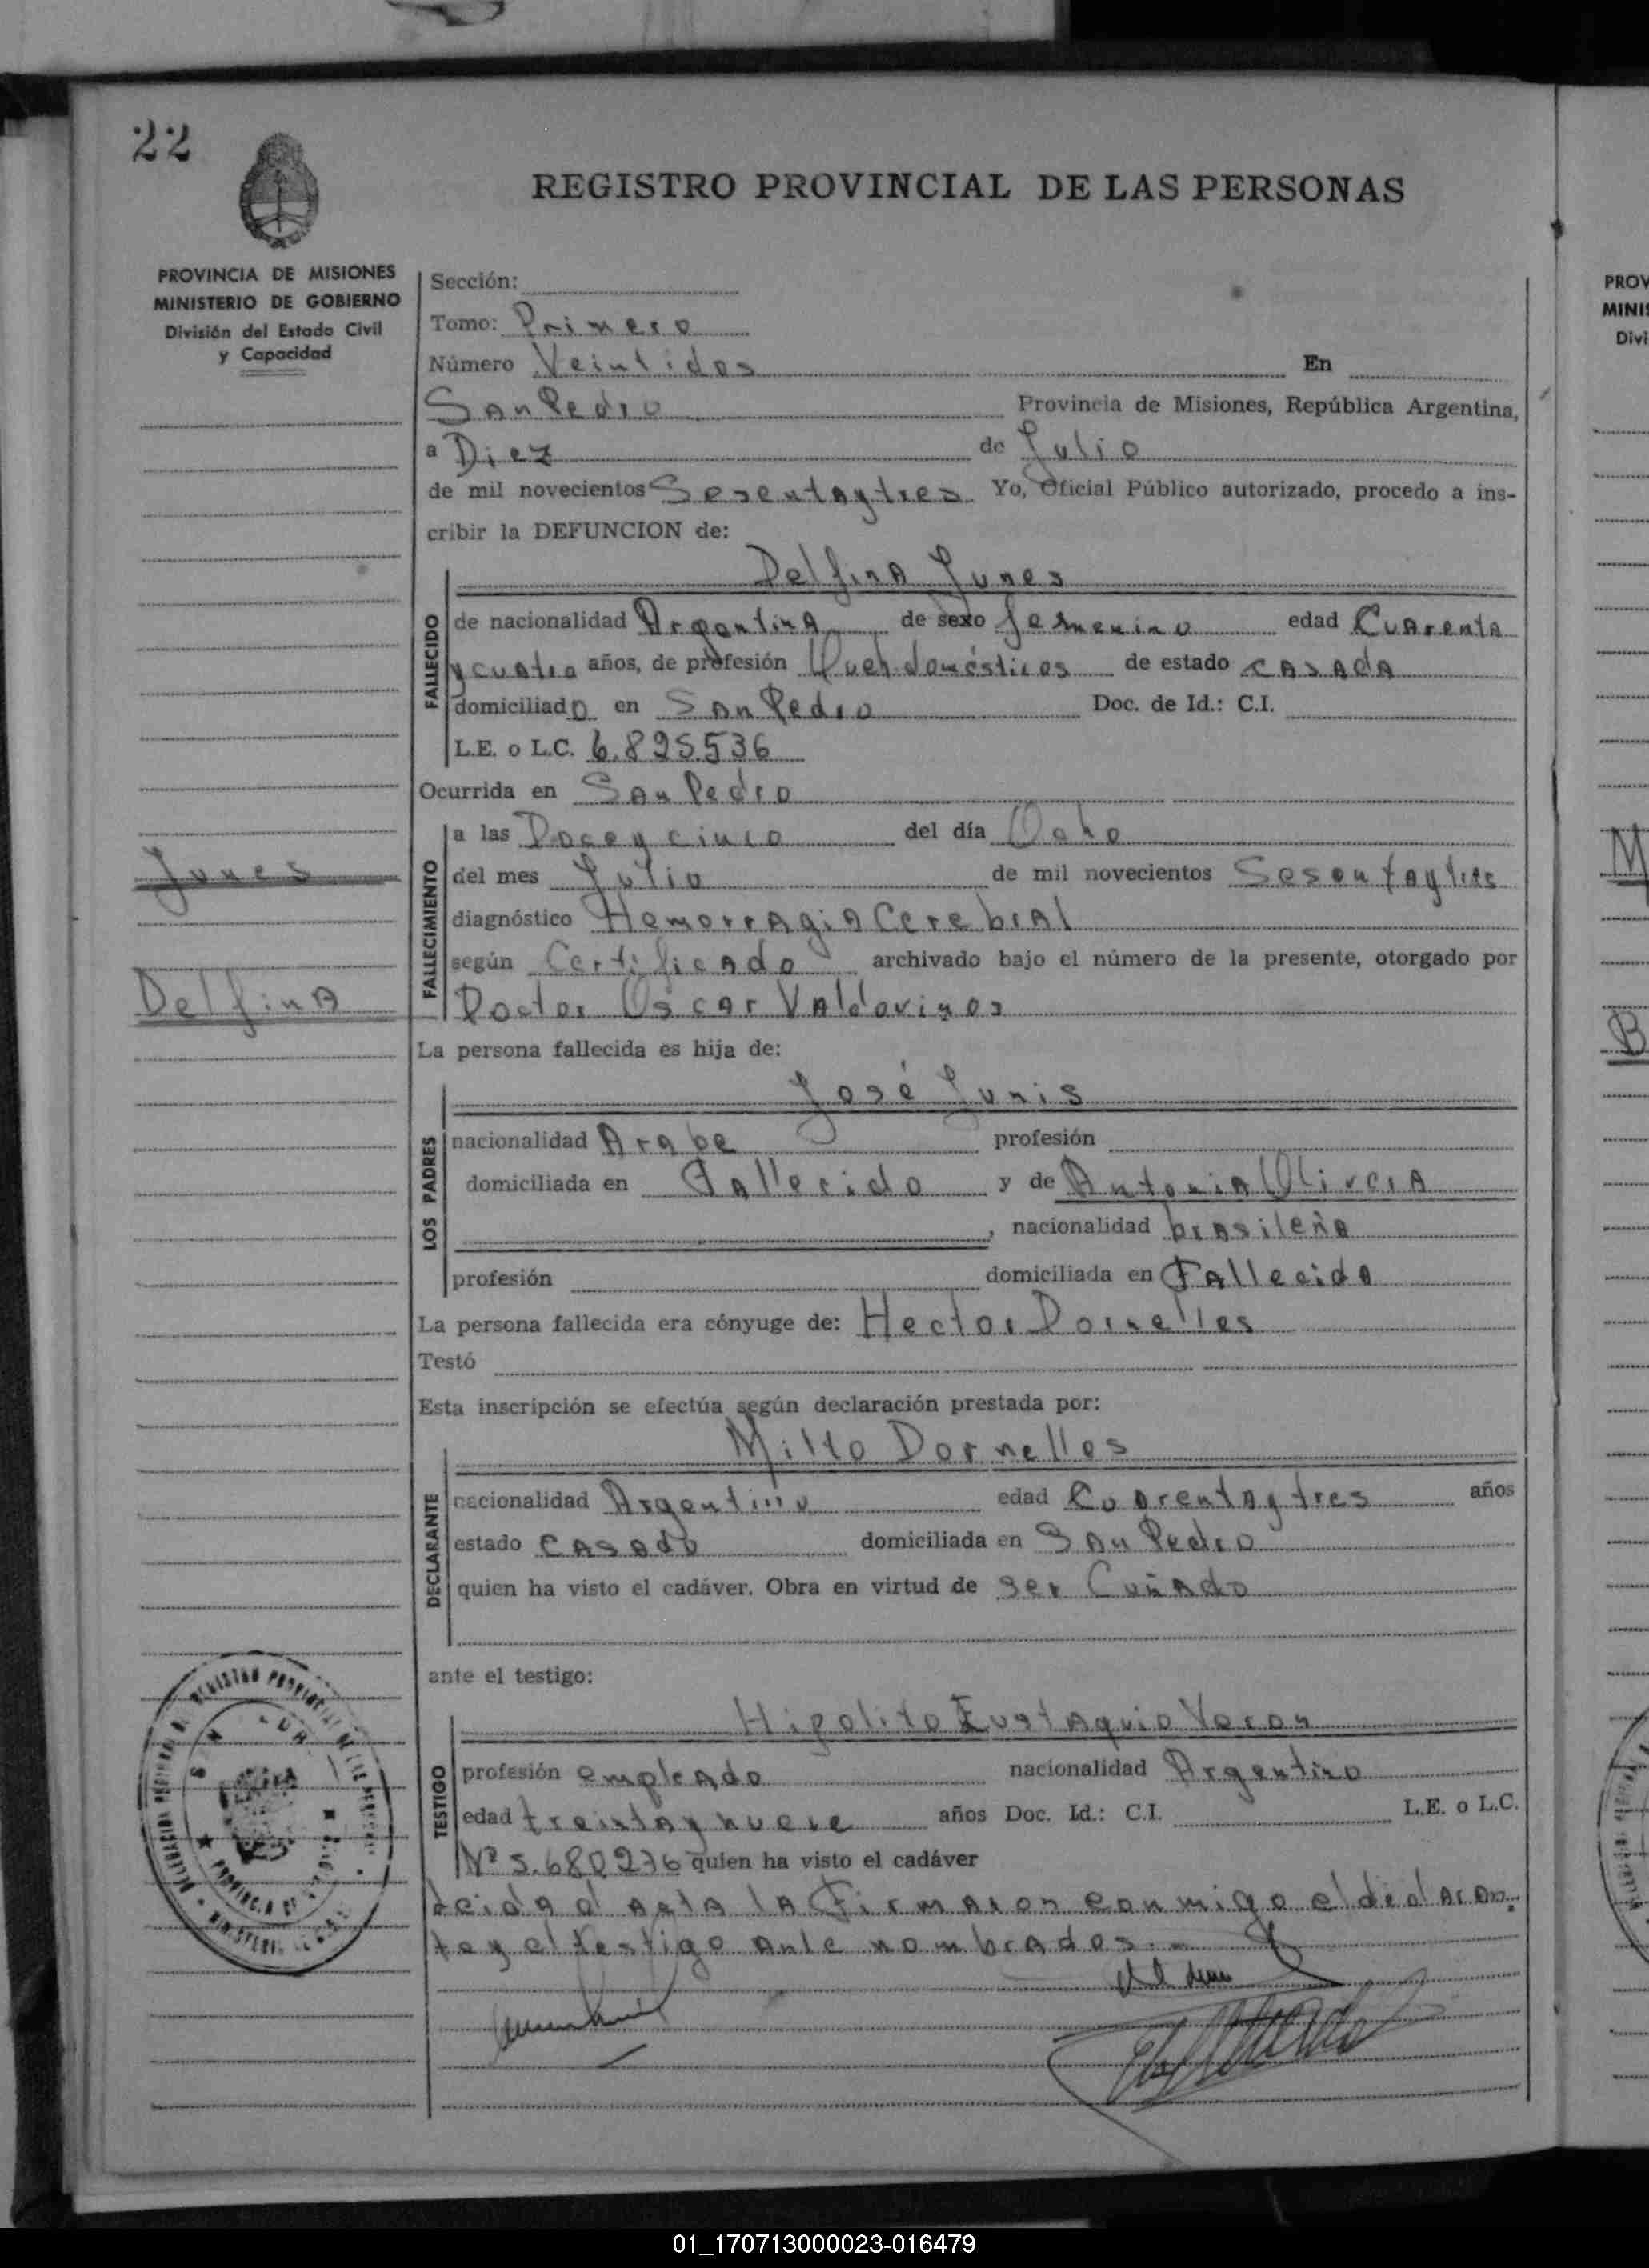 22
REGISTRO PROVINCIAL DE LAS PERSONAS
PROVINCIA DE MISIONES
MINISTERIO DE GOBIERNO
División del Estado Civil
y Capacidad
Sección:
Tomo: Primero
Número Veintidos En
San Pedro Provincia de Misiones, República Argentina,
a Diez de Julio
de mil novecientos Sesentaytres Yo, Oficial Público autorizado, procedo a ins-
cribir la DEFUNCION de:
Delfina Junes
FALLECIDO
de nacionalidad Argentina de sexo femenino edad Cuarenta
y cuatro años, de profesión Queh. domésticos de estado casada
domiciliado en San Pedro Doc. de Id.: C.I.
L.E. o L.C. 6.825.536
Ocurrida en San Pedro
FALLECIMIENTO
a las Doce y cinco del día Ocho
del mes Julio de mil novecientos Sesentaytres
diagnóstico Hemorragia Cerebral
según Certificado archivado bajo el número de la presente, otorgado por
Doctor Oscar Valdovinos
Junes
Delfina
La persona fallecida es hija de:
José Junis
LOS PADRES
nacionalidad Arabe profesión
domiciliada en Fallecido y de Antonia Oliveira
, nacionalidad brasileña
profesión domiciliada en Fallecida
La persona fallecida era cónyuge de: Hector Dornelles
Testó
Esta inscripción se efectúa según declaración prestada por:
Milto Dornelles
DECLARANTE
nacionalidad Argentino edad Cuarentaytres años
estado casado domiciliada en San Pedro
quien ha visto el cadáver. Obra en virtud de ser Cuñado
ante el testigo:
Hipolito Eustaquio Veron
TESTIGO
profesión empleado nacionalidad Argentino
edad treintaynueve años Doc. Id.: C.I. L.E. o L.C.
Nº 5.680276 quien ha visto el cadáver
Leida el acta la Firmaron conmigo el declaran-
te y el testigo ante nombrados.-
PROV
MINIS
Divi
M
B
01_170713000023-016479